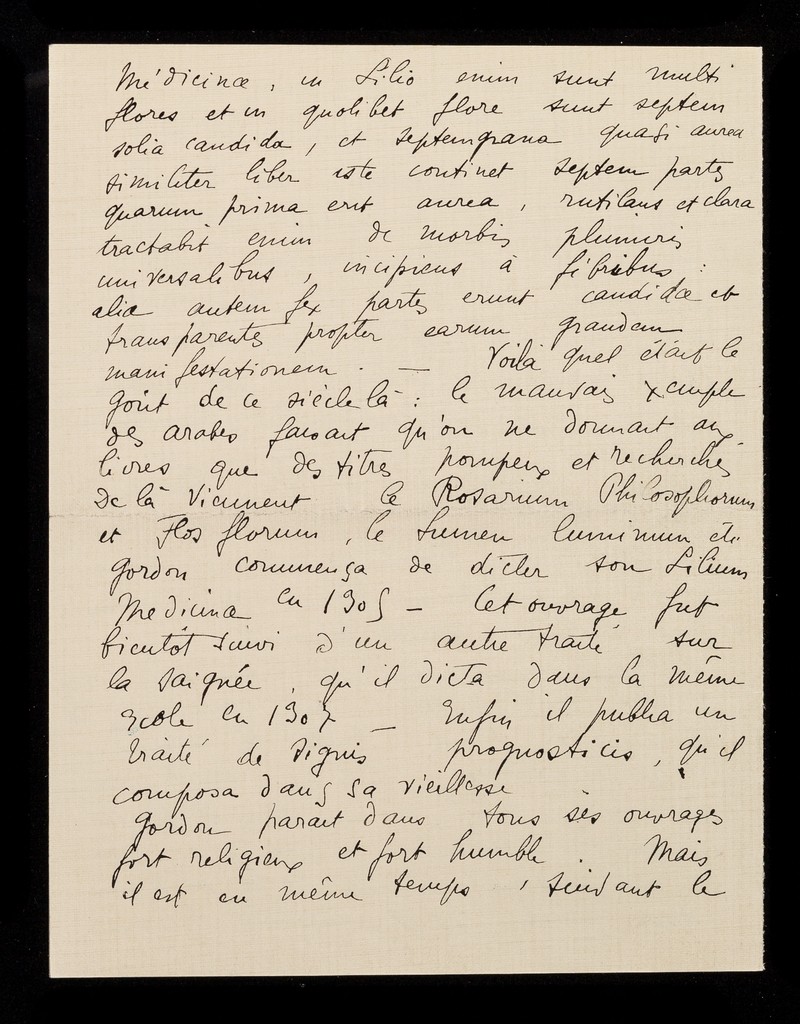 Médicinæ, in Lilio enim sunt multi
flores et in quolibet flore sunt septem
folia candida, et septemgrana quasi aurea
similiter liber iste continet septem partes
quarum prima erit aurea, rutilans et clara
tractabit enim de morbis plurimis
universalibus, incipiens à febribus :
aliæ autem sex partes erunt candidæ et
transparentes propter earum grandem
manifestationem. — Voilà quel était le
goût de ce siècle là : le mauvais exemple
des arabes faisait qu'on ne donnait aux
livres que des titres pompeux et recherchés
De là viennent le Rosarium Philosophorum
et Flos florum, le Lumen luminum etc.
Gordon commença de dicter son Lilium
Medicinæ en 1305 — Cet ouvrage fut
bientôt suivi d'un autre traité sur
la saignée, qu'il dicta dans la même
Ecole en 1307 — Enfin il publia un
traité de signis prognosticis, qu'il
composa dans sa vieillesse
Gordon parait dans tous ses ouvrages
fort religieux et fort humble. Mais
il est en même temps, suivant le